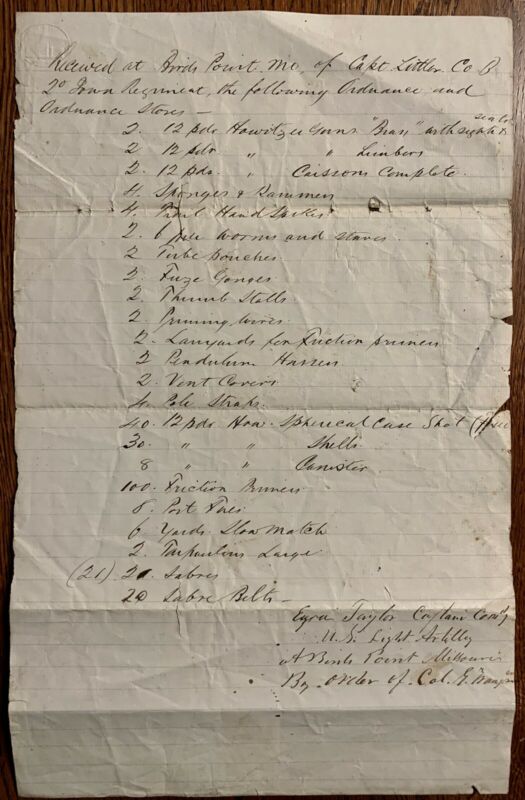 Received at Birds Point, Mo, of Capt Littler Co B
2d Iowa Regiment, the following Ordnance and
Ordnance Stores —
2. 12 pdr Howitzer Guns "Brass" with sights &
2 12 pdr " " Limbers
2. 12 pdr " Caissons Complete.
4 Sponges & Rammers
4. Hand Spikes
2. worms and staves
2 Tube pouches
2. Fuze Gouges
2. Thumb Stalls
2. Priming wires
2. Lanyards for Friction primers
2 Pendulum Hausses
2. Vent Covers
4. Pole Straps.
40. 12 pdr How. Spherical Case Shot
30. " " Shells.
8 " " Canister
100. Friction Primers
8. Port Fires
6 Yards Slow Match
2. Tarpaulins Large
(21) Sabres
20 Sabre Belts —
Ezra Taylor Captain Comdg
U.S. Light Artillery
At Birds Point Missouri
By order of Col.